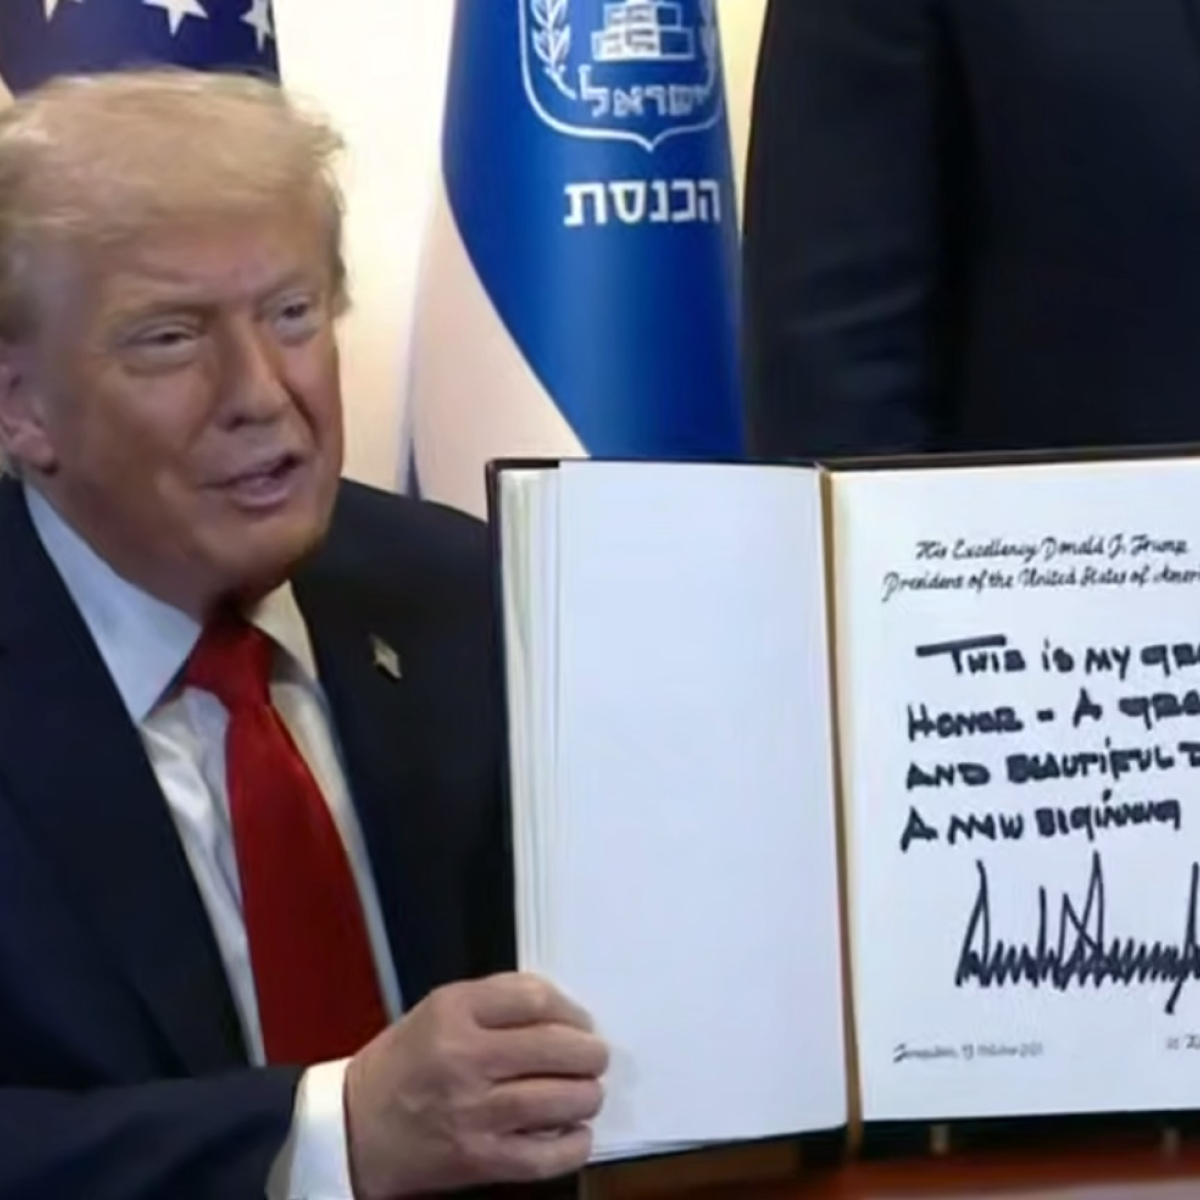 ישראל
הכנסת
His Excellency Donald J. Trump
President of the United States of
THIS IS MY
HONOR - A
AND BEAUTIFUL
A NEW BIGINNING
Jerusalem, 13 October